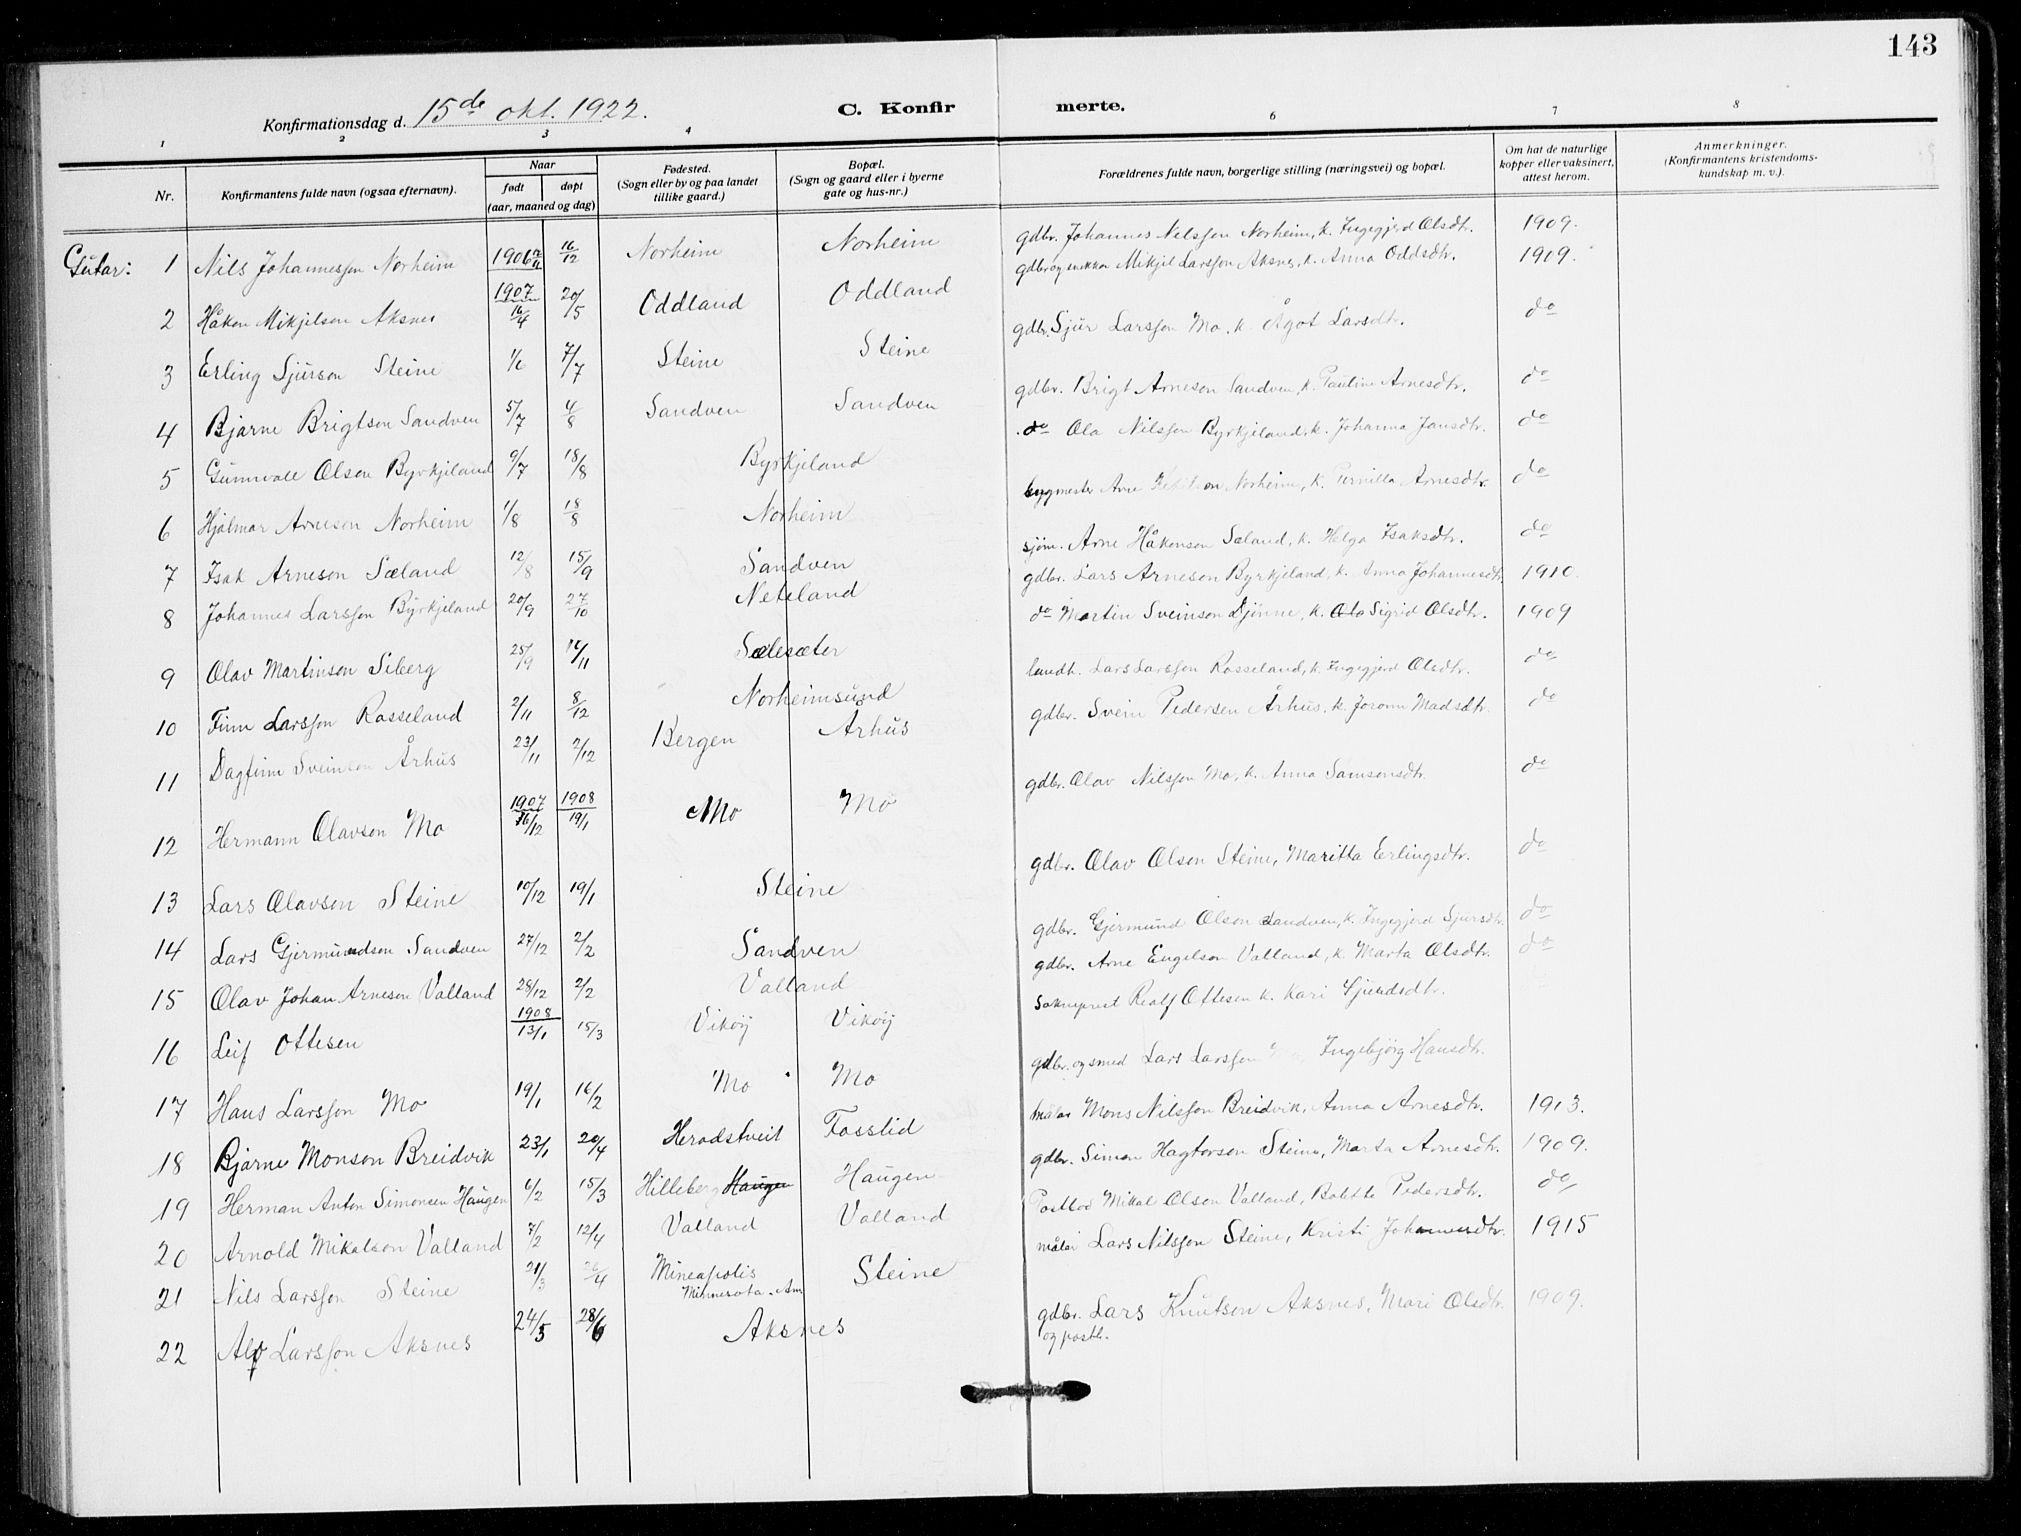 143
Konfirmationsdag d. 15de okt. 1922.
C. Konfir merte.
1 2 3 4 6 7 8
Nr. Konfirmantens fulde navn (ogsaa efternavn). Naar født døpt (aar, maaned og dag) Fødested. (Sogn eller by og paa landet tillike gaard.) Bopæl. (Sogn og gaard eller i byerne gate og hus-nr.) Forældrenes fulde navn, borgerlige stilling (næringsvei) og bopæl. Om hat de naturlige kopper eller vaksinert, attest herom. Anmerkninger. (Konfirmantens kristendoms-kundskap m. v.).
Gutar: 1 Nils Johannesson Norheim 1906 16/12 Norheim Norheim gdbr. Johannes Nilsson Norheim, k. Ingegjerd Olsdtr. 1909.
2 Håkon Mikjelson Aksnes 1907 16/4 20/5 Oddland Oddland gdbr og snekker Mikjel Larsson Aksnes, k. Anna Oddsdtr. 1909.
3 Erling Sjurson Steine 1/6 7/7 Steine Steine gdbr. Sjur Larsson Mo, k. Ågot Larsdtr. do
4 Bjarne Brigtson Sandven 5/7 4/8 Sandven Sandven gdbr. Brigt Arneson Sandven, k. Pauline Arnesdtr. do
5 Gunnvald Olson Byrkjeland 9/7 18/8 Byrkjeland do Ola Nilsson Byrkjeland, k. Johanna Jansdtr. do
6 Hjalmar Arneson Norheim 1/8 18/8 Norheim bygmester Arne Norheim, k. Pernilla Arnesdtr. do
7 Isak Arneson Sæland 12/8 15/9 Sandven sjøm. Arne Håkonson Sæland, k. Helga Isaksdtr. do
8 Johannes Larsson Byrkjeland 20/9 27/10 Neteland gdbr. Lars Arneson Byrkjeland, k. Anna Johannesdtr. 1910.
9 Olav Martinson Siberg 25/9 Sælesæter do Martin Sveinson Djønne, k. Sigrid Olsdtr. 1909
10 Finn Larsson Rosseland 2/11 8/12 Norheimsund landh. Lars Larsson Rosseland, k. Ingegjerd Olsdtr. do
11 Dagfinn Sveinson Århus 23/11 2/12 Bergen Århus gdbr. Svein Pedersen Århus, k. Joronn Madsdtr. do
12 Hermann Olavson Mo 1907 16/12 1908 19/1 Mo Mo gdbr. Olav Nilsson Mo, k. Anna Samsonsdtr. do
13 Lars Olavson Steine 10/12 19/1 Steine gdbr. Olav Olson Steine, Maritta Erlingsdtr. do
14 Lars Gjermundson Sandven 27/12 2/2 Sandven gdbr. Gjermund Olson Sandven, k. Ingegjerd Sjursdtr. do
15 Olav Johan Arneson Valland 28/12 2/2 Valland gdbr. Arne Engelson Valland, k. Marta Olsdtr. do
16 Leif Ottesen 1908 13/1 15/3 Vikøy Vikøy Sokneprest Realf Ottesen k. Kari
17 Hans Larsson Mo 19/1 16/2 Mo Mo gdbr. og smed Lars Larsson Ingebjørg Hansdtr.
18 Bjarne Monson Breidvik 23/1 20/4 Heradstveit Fosslid målar Mons Nilsson Breidvik, Anna Arnesdtr. 1913.
19 Herman Anton Simonsen Haugen 6/2 15/3 Hilleberg Haugen Haugen gdbr. Simon Hagtorson Steine, Marta Arnesdtr. 1909.
20 Arnold Mikalson Valland 7/2 12/4 Valland Valland Postbod Mikal Olson Valland, Bolette Pedersdtr. do
21 Nils Larsson Steine 21/3 26/4 Mineapolis Minnesota. Am Steine målar Lars Nilsson Steine, Kristi Johannesdtr. 1915
22 Alf Larsson Aksnes 24/5 28/6 Aksnes gdbr. Lars Knutson Aksnes, Mari Olsdtr. 1909.
og postb.